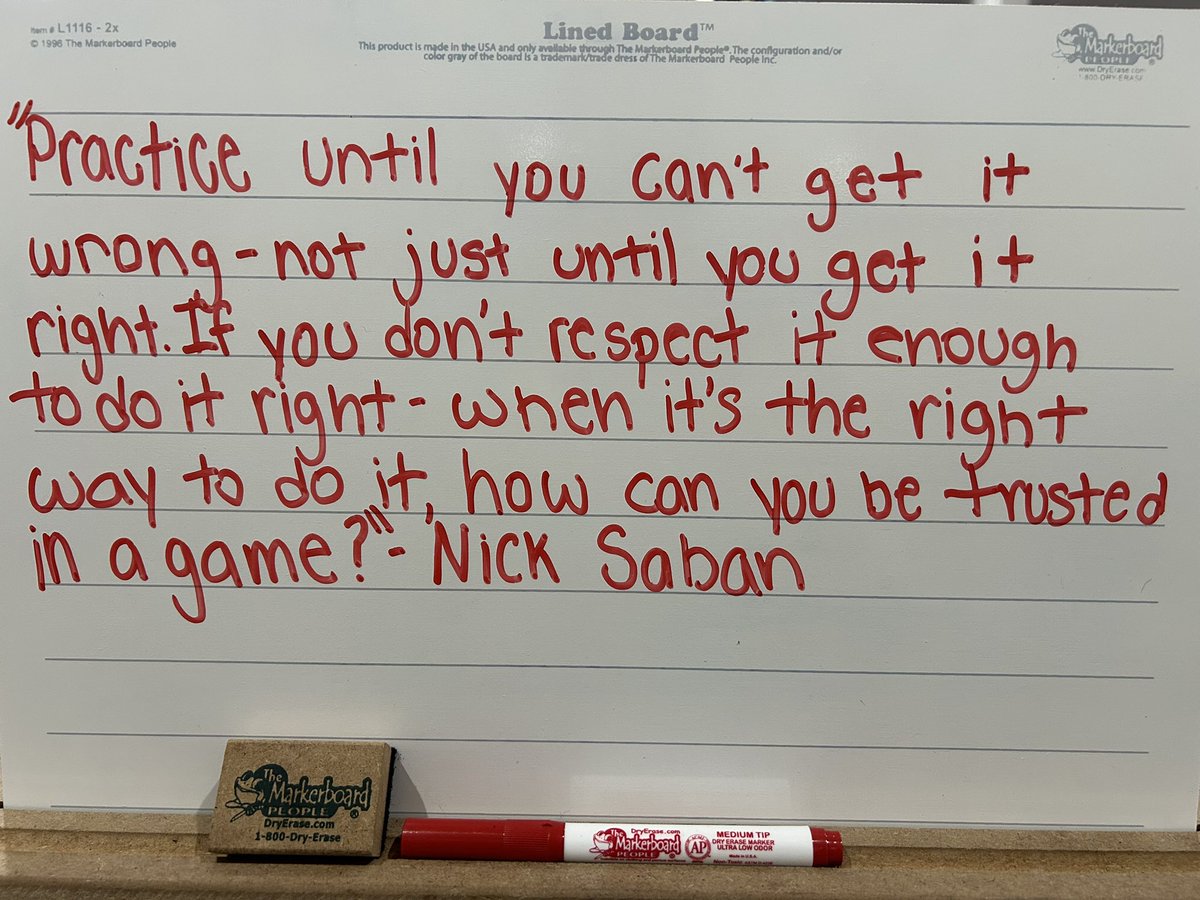 Item # L1116 - 2x
© 1996 The Markerboard People
Lined Board™
This product is made in the USA and only available through The Markerboard People®. The configuration and/or
color gray of the board is a trademark/trade dress of The Markerboard People Inc.
The
Markerboard
PEOPLE®
www.DryErase.com
1-800-DRY-ERASE
"Practice until you can't get it
wrong - not just until you get it
right. If you don't respect it enough
to do it right - when it's the right
way to do it, how can you be trusted
in a game?" - Nick Saban
The
Markerboard
PEOPLE®
DryErase.com
1-800-Dry-Erase
DryErase.com
The
Markerboard
PEOPLE
AP
MEDIUM TIP
DRY ERASE MARKER
ULTRA LOW ODOR
Made in U.S.A.